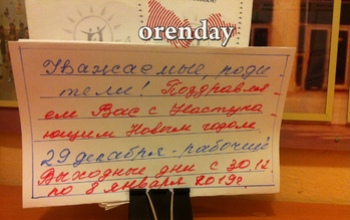 orenday
Уважаемые, роди
тели! Поздравля
ем Вас с Наступа
ющим Новым годом
29 декабря - рабочий
Выходные дни с 30.12
по 8 января 2019г